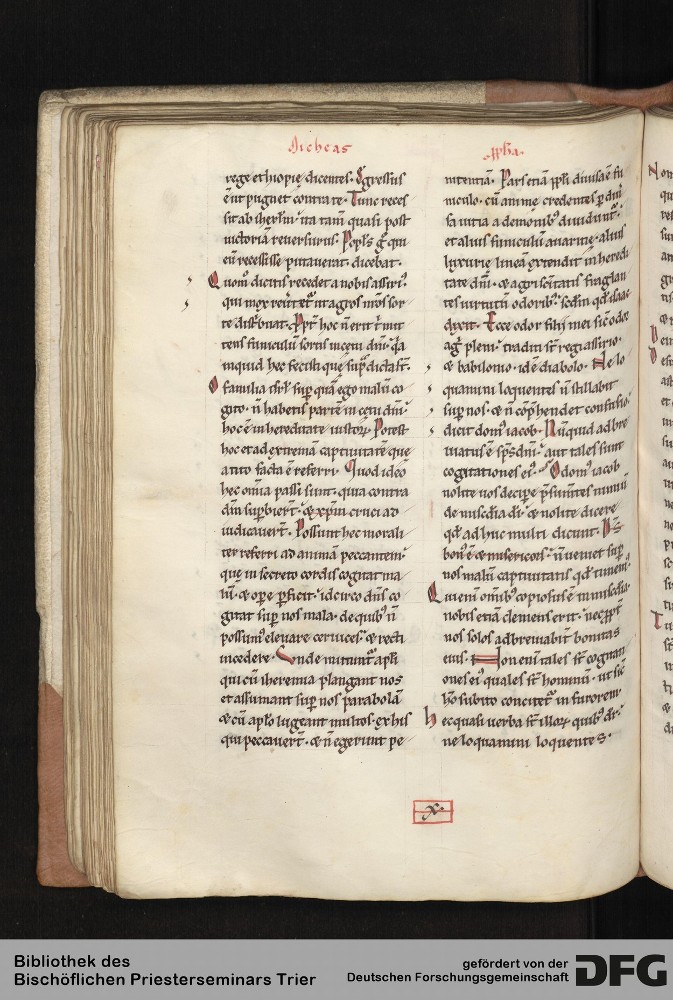 Micheas
ppha.
rege ethiopię dicentes. Egressus
ē ut pugnet contra te. Tunc reces
sit ab iherlm̄. ita tam̄ quasi post
uictoriā reuersurus. Popls g̅ qui
eū recessisse putauerat. dicebat.
Quom̊ dicitis recedet a nobis assiri᷒
qui mox reu̅tet᷑ ut agros
hoc n̄ erit t̄ mit
tens funiculū sortis in cetu dn̄i. q̄a
inquid hec fecisti quę sup̄dicta st̄.
O familia isrl̄ sup̄ quā ego malū co
gito. n̄ habetis partē in cętu dn̄i.
hoc ē in hereditate iustoꝝ. Potest
hoc et ad extremā captiuitatē quę
a tito facta ē referri. Quod ideo
hec om̄ia passi sunt. quia contra
dn̄m sup̄bier̄t. & xp̄m cruci ad
iudicauer̄t. Possunt hec morali
ter referri ad animā peccantem.
quę in secreto cordis cogitat ma
lū. & ope p̄ficit. idcirco dn̄s co
gitat sup̄ nos mala. de quib᷒ n̄
possum᷒ eleuare ceruices. & recti
incedere. Unde mittunt᷑ apl̄i
qui cū iheremia plangant nos
et assumant sup̄ nos parabolā
& cū aplo lugeant multos. ex his
qui peccauer̄t. & n̄ egerunt pe
nitentiā. Pars etiā ppl̄i diuisa ē fu
niculo. cū animę credentes p̄ diu̅
sa uitia a demonib᷒ diuidunt᷑.
et alius funiculū auaritię. alius
luxurię lineā extendit in heredi
tate dn̄i. & agri sc̄itatis fraglan
tes uirtutū odorib᷒. sc̄dm qd̄ isaac
dixit. Ecce odor filii mei sic̄ odor
agri pleni. traditi st̄ regi assirio.
& babilonio. id ē diabolo. Ne lo
quamini loquentes n̄ stillabit
sup̄ nos. & n̄ cōp̄hendet confusio.
dicit dom᷒ iacob. Nunquid adbre
uiatus ē sps̄ dn̄i. aut tales sunt
cogitationes ei᷒. O dom᷒ iacob
nolite uos decipe. p̄sumētes nimiū
de misc̄dia dī. & nolite dicere
qd̄ adhuc multi dicunt. Ds̄
bon᷒ ē & misericors. n̄ ueniet sup̄
nos malū captiuitatis qd̄ timem᷒.
Qui enī om̄ib᷒ copiosus ē in misc̄dia.
nobis etiā clemens erit. nec
nos solos adbreuiabit̄ bonitas
eius. Non enī tales st̄ cogitati
ones ei᷒ quales st̄ hominū. ut sic̄
hō subito concitet᷑ in furorem.
hec quasi uerba st̄ illoꝝ quib᷒ dr̄.
ne loquamini loquentes.
x.
Bibliothek des
Bischöflichen Priesterseminars Trier
gefördert von der
Deutschen Forschungsgemeinschaft
DFG